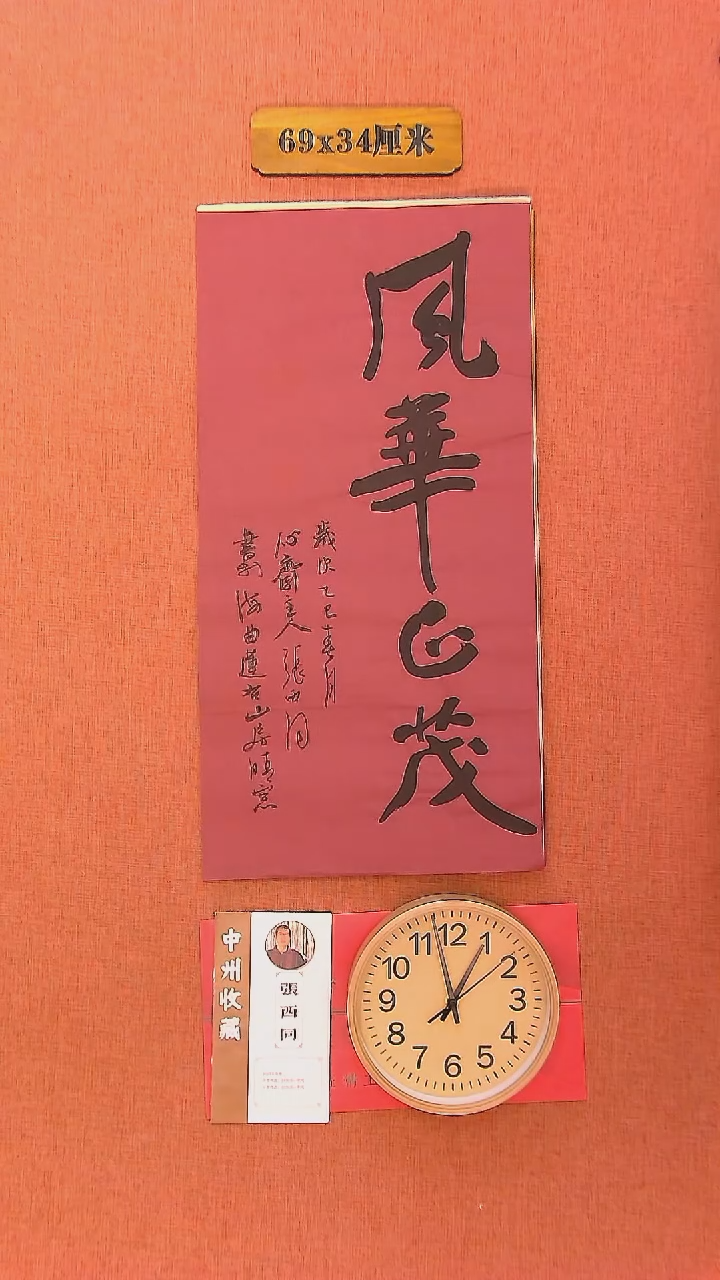 69x34厘米
風華正茂
歲次乙巳春月
心齋主人張西同
書於海曲蘆石山房晴窓
中州收藏
張西同
12
1
2
3
4
5
6
7
8
9
10
11